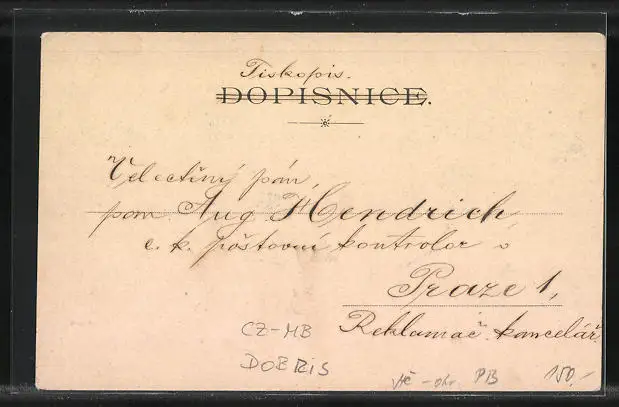 Tiskopis.
DOPISNICE.
Velectěný pán,
pan Aug. Hendrich
c. k. poštovní kontrolor v
Praze 1,
Reklamač. kancelář.
CZ-MB
DOBRIS
PB 150,-